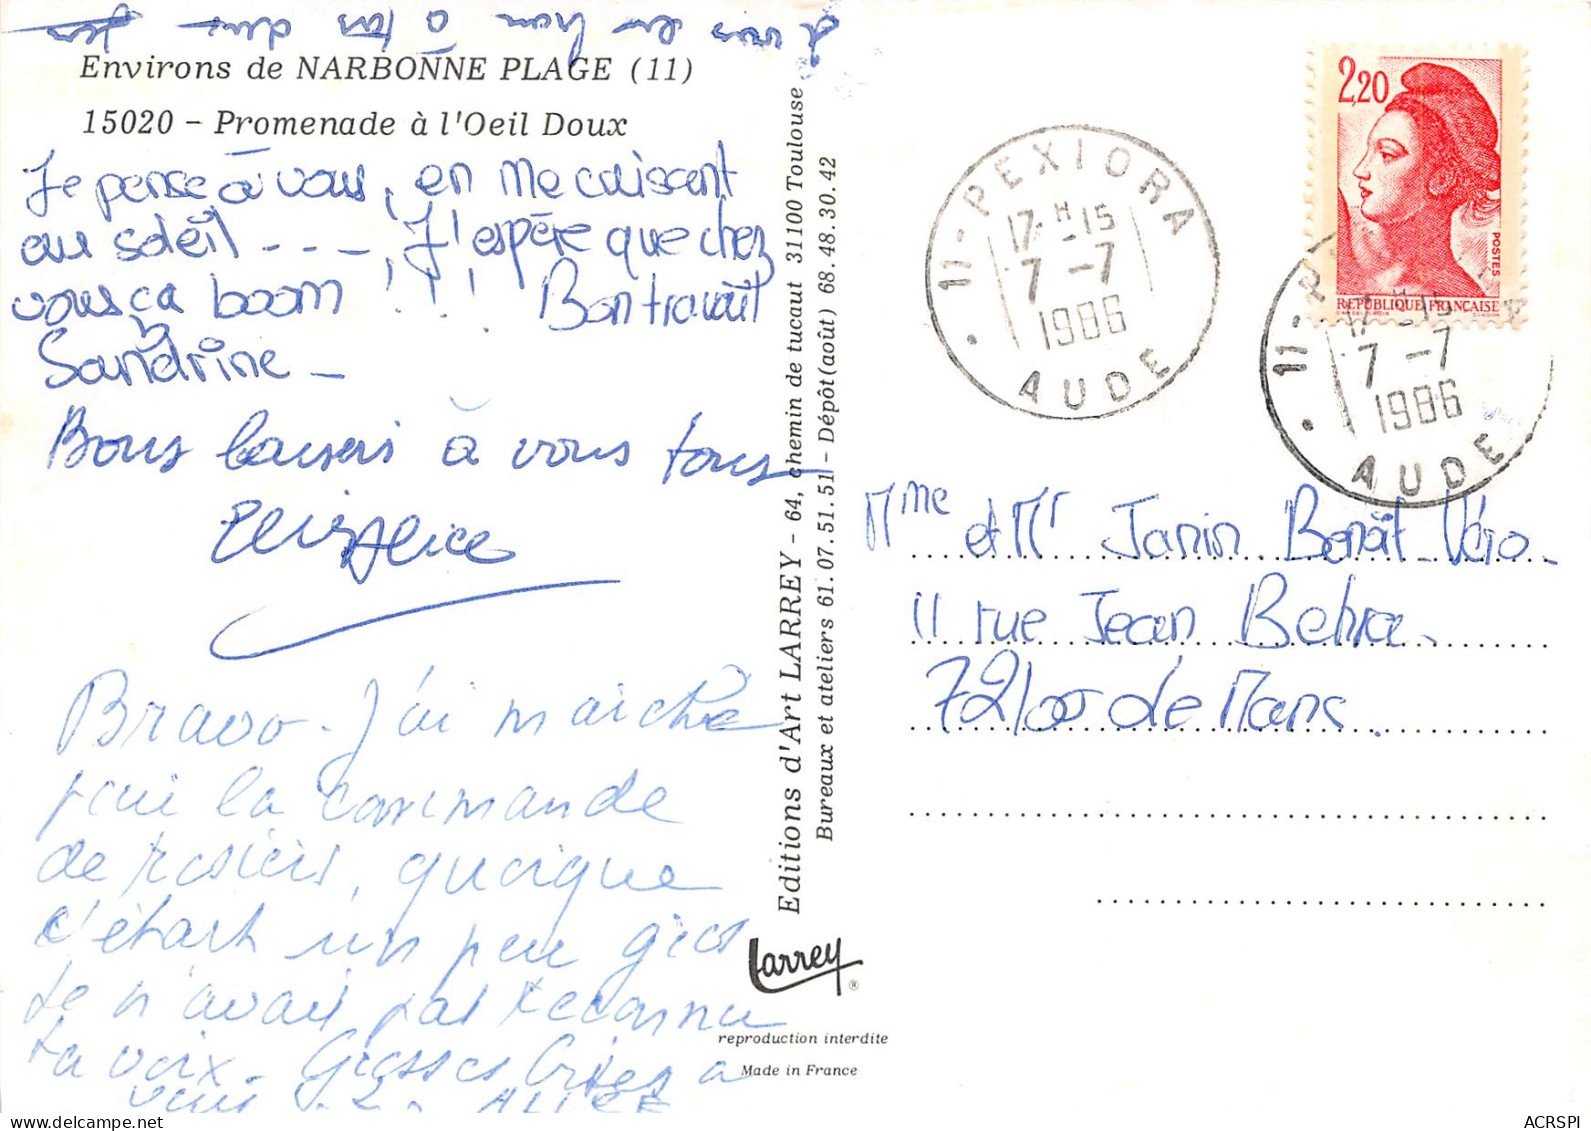 Environs de NARBONNE PLAGE (11)
15020 - Promenade à l'Oeil Doux
Je pense à vous, en me caissant
au soleil - - - , J'espère que chez
vous ça boom !!! Bon travail
Sandrine -
Bons baisers à vous tous
Bravo - J'ai marché
pour la commande
de rosiers, quoique
c'était un peu gros
Je n'avais pas reconnu
ta voix - Grosses bises à
ALICE
Editions d'Art LARREY - 64, chemin de tucaut 31100 Toulouse
Bureaux et ateliers 61.07.51.51 - Dépôt (août) 68.48.30.42
Larrey ®
reproduction interdite
Made in France
2,20
POSTES
REPUBLIQUE FRANCAISE
11 - PEXIORA
17 H 15
7 - 7
1986
AUDE
11 - P
17 H 15
7 - 7
1986
AUDE
Mme et Mr Janin Benoît Véro
11 rue Jean Behra
72100 de Mans.
ACRSPI